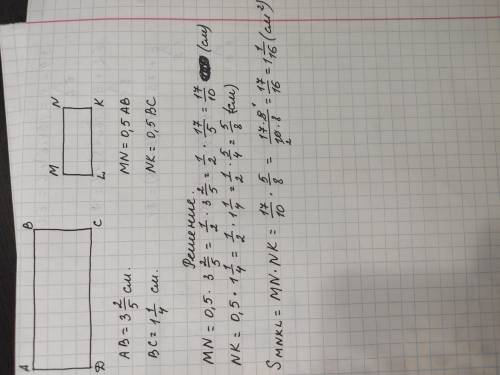 A B M N
D C L K
AB = 3 2/5 см. MN = 0,5 AB
BC = 1 1/4 см. NK = 0,5 BC
Решение.
MN = 0,5 · 3 2/5 = 1/2 · 3 2/5 = 1/2 · 17/5 = 17/10 (см)
NK = 0,5 · 1 1/4 = 1/2 · 1 1/4 = 1/2 · 5/4 = 5/8 (см)
S MNKL = MN · NK = 17/10 · 5/8 = 17·8/10·8 = 17/16 = 1 1/16 (см²)